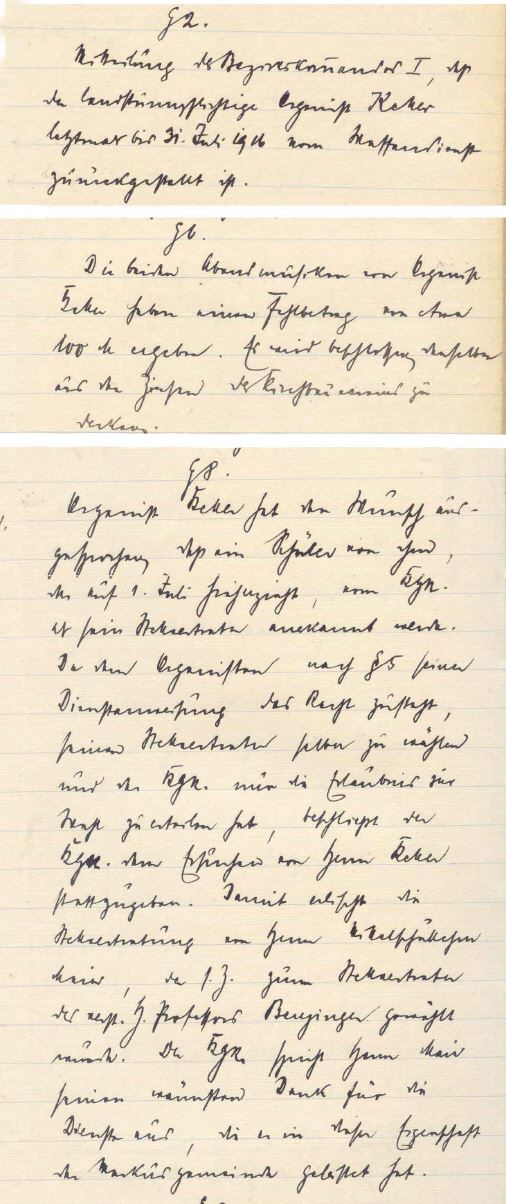 § 2.
Mitteilung des Bezirkskommandos I, daß
der landsturmpflichtige Organist Keller
letztmals bis 31. Juli 1916 vom Waffendienst
zurückgestellt ist.
§ 6.
Die beiden Abendmusiken von Organist
Keller haben einen Fehlbetrag von etwa
100 M ergeben. Es wird beschlossen, denselben
aus den Zinsen des Kirchbauvereins zu
decken.
§ 8.
Organist Keller hat den Wunsch aus-
gesprochen, daß ein Schüler von ihm,
der auf 1. Juli hieherzieht, vom Kgr.
als sein Stellvertreter anerkannt werde.
Da dem Organisten nach § 5 seiner
Dienstanweisung das Recht zusteht,
seinen Stellvertreter selber zu wählen
und der Kgr. nur die Erlaubnis zur
zu erteilen hat, beschließt der
Kgr. dem Ersuchen von Herrn Keller
stattzugeben. Damit erlischt die
Stellvertretung von Herrn Mittelschullehrer
Maier, der s. Z. zum Stellvertreter
des verst. H. Professors Benzinger gewählt
wurde. Der Kgr. spricht Herrn Maier
seinen wärmsten Dank für die
Dienste aus, die er in dieser Eigenschaft
der Markusgemeinde geleistet hat.